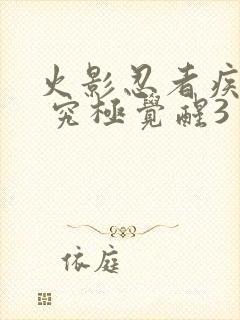 火影忍者疾
究極覺醒3
依庭